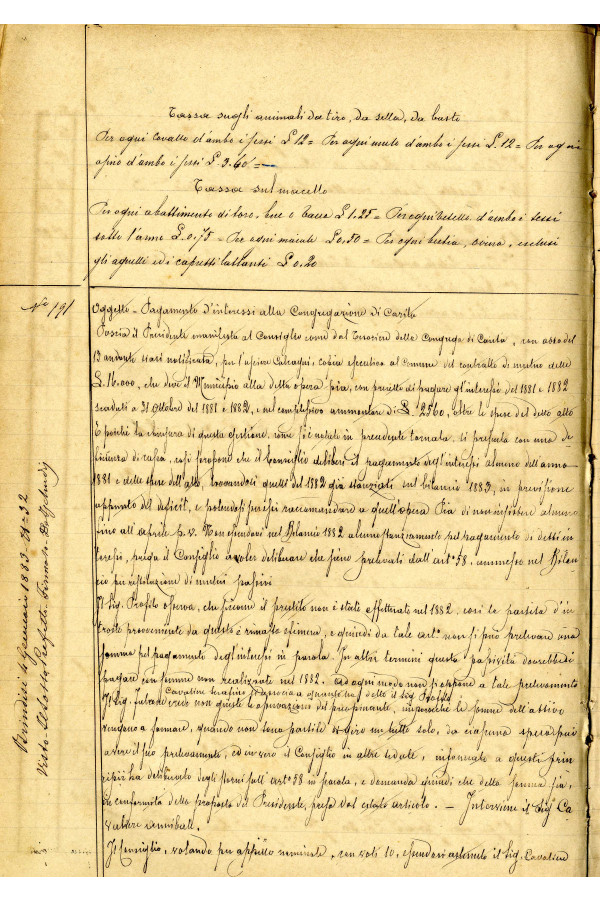 Tassa sugli animali da tiro, da sella, da basto
Per ogni cavallo d'ambo i sessi £ 12 = Per ogni mulo d'ambo i sessi £. 12 = Per ogni
asino d'ambo i sessi £ 3.60 =
Tassa sul macello
Per ogni abattimento di toro, bue e vacca £ 1.25 = Per ogni vitello d'ambo i sessi
sotto l'anno £. 0,75 = Per ogni maiale £ 0.50 = Per ogni bestia, ovina, esclusi
gli agnelli ed i capretti lattanti £ 0.20
N° 191
Oggetto = Pagamento d'interessi alla Congregazione di Carità
Poscia il Presidente manifesta al Consiglio come dal Tesoriere della Congrega di Carità, con atto del
13 andante stasi notificata, per l'usciere, copia esecutiva al Comune del contratto di mutuo delle
£. 16.000, che deve il Municipio alla detta opera pia, con precetto di pagare gl'interessi del 1881 e 1882
scaduti a 31 Ottobre del 1881 e 1882, e nel complessivo ammontare di £. 2560, oltre le spese del detto atto
E poichè la chiusura di questa gestione, come si è notato in precedente tornata, si presenta con una de
ficienza di cassa, così propone che il Consiglio deliberi il pagamento degl'interessi almeno dell'anno
1881 e delle spese dell'atto, trovandosi quelle del 1882 già stanziati sul bilancio 1883, in previsione
appunto del deficit, e potendosi perciò raccomandare a quell'opera Pia di non insistere almeno
fino all'aprile p.v. Non essendovi nel Bilancio 1882 alcuno stanziamento pel pagamento di detti in
teressi, prega il Consiglio a voler deliberare che siano prelevati dall'art° 58, ammesso nel Bilan
cio per estinzione di mutui passivi
Il Sig. Profilo osserva, che siccome il prestito non è stato effettuato nel 1882, così la partita d'in
troito proveniente da questo è rimasta effimera, e quindi da tale art° non si può prelevare una
somma pel pagamento degl'interessi in parola. In altri termini questa passività dovrebbesi
pagare con somme non realizzate nel 1882. Ad ogni modo non si oppone a tale prelevamento
Cavaliere Serafini si associa a quanto ha detto il Sig. Profilo
Il Sig. crede non giuste le osservazioni del preopinante, imperocchè le somme dell'attivo
vengono a formare, quando non sono partite di giro un tutto solo, da cui una spesa può
avere il suo prelevamento, ed invero il Consiglio in altre sedute, informate a questi prin
cipii ha deliberato degli storni sull'art° 58 in parola, e domanda quindi che detta somma sia,
in conformità della proposta del Presidente, presa dal citato articolo. — Interviene il Sig. Ca
valiere Annibale.
Il Consiglio, votando per appello nominale, con voti 10, essendosi astenuto il Sig. Cavaliere
Brindisi 4 Gennaio 1883. N° 32
Visto = Il Sotto Prefetto = Firmato =